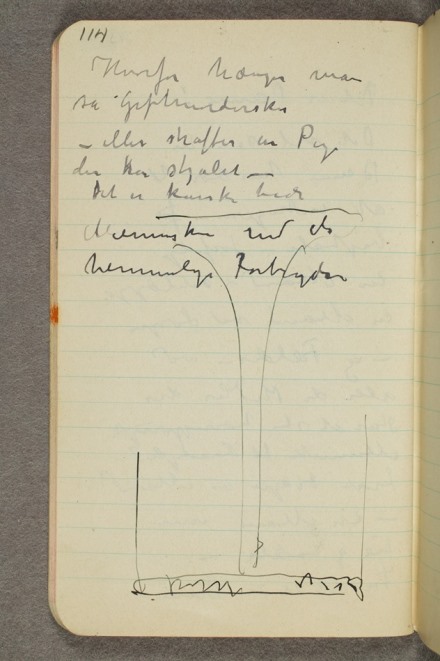 114
Hvorfor hænger man
så Giftmordersker
– eller straffer en Pige
der har stjålet –
Det er kanske bedre
Mennesker end de
hemmelige Forbrydere